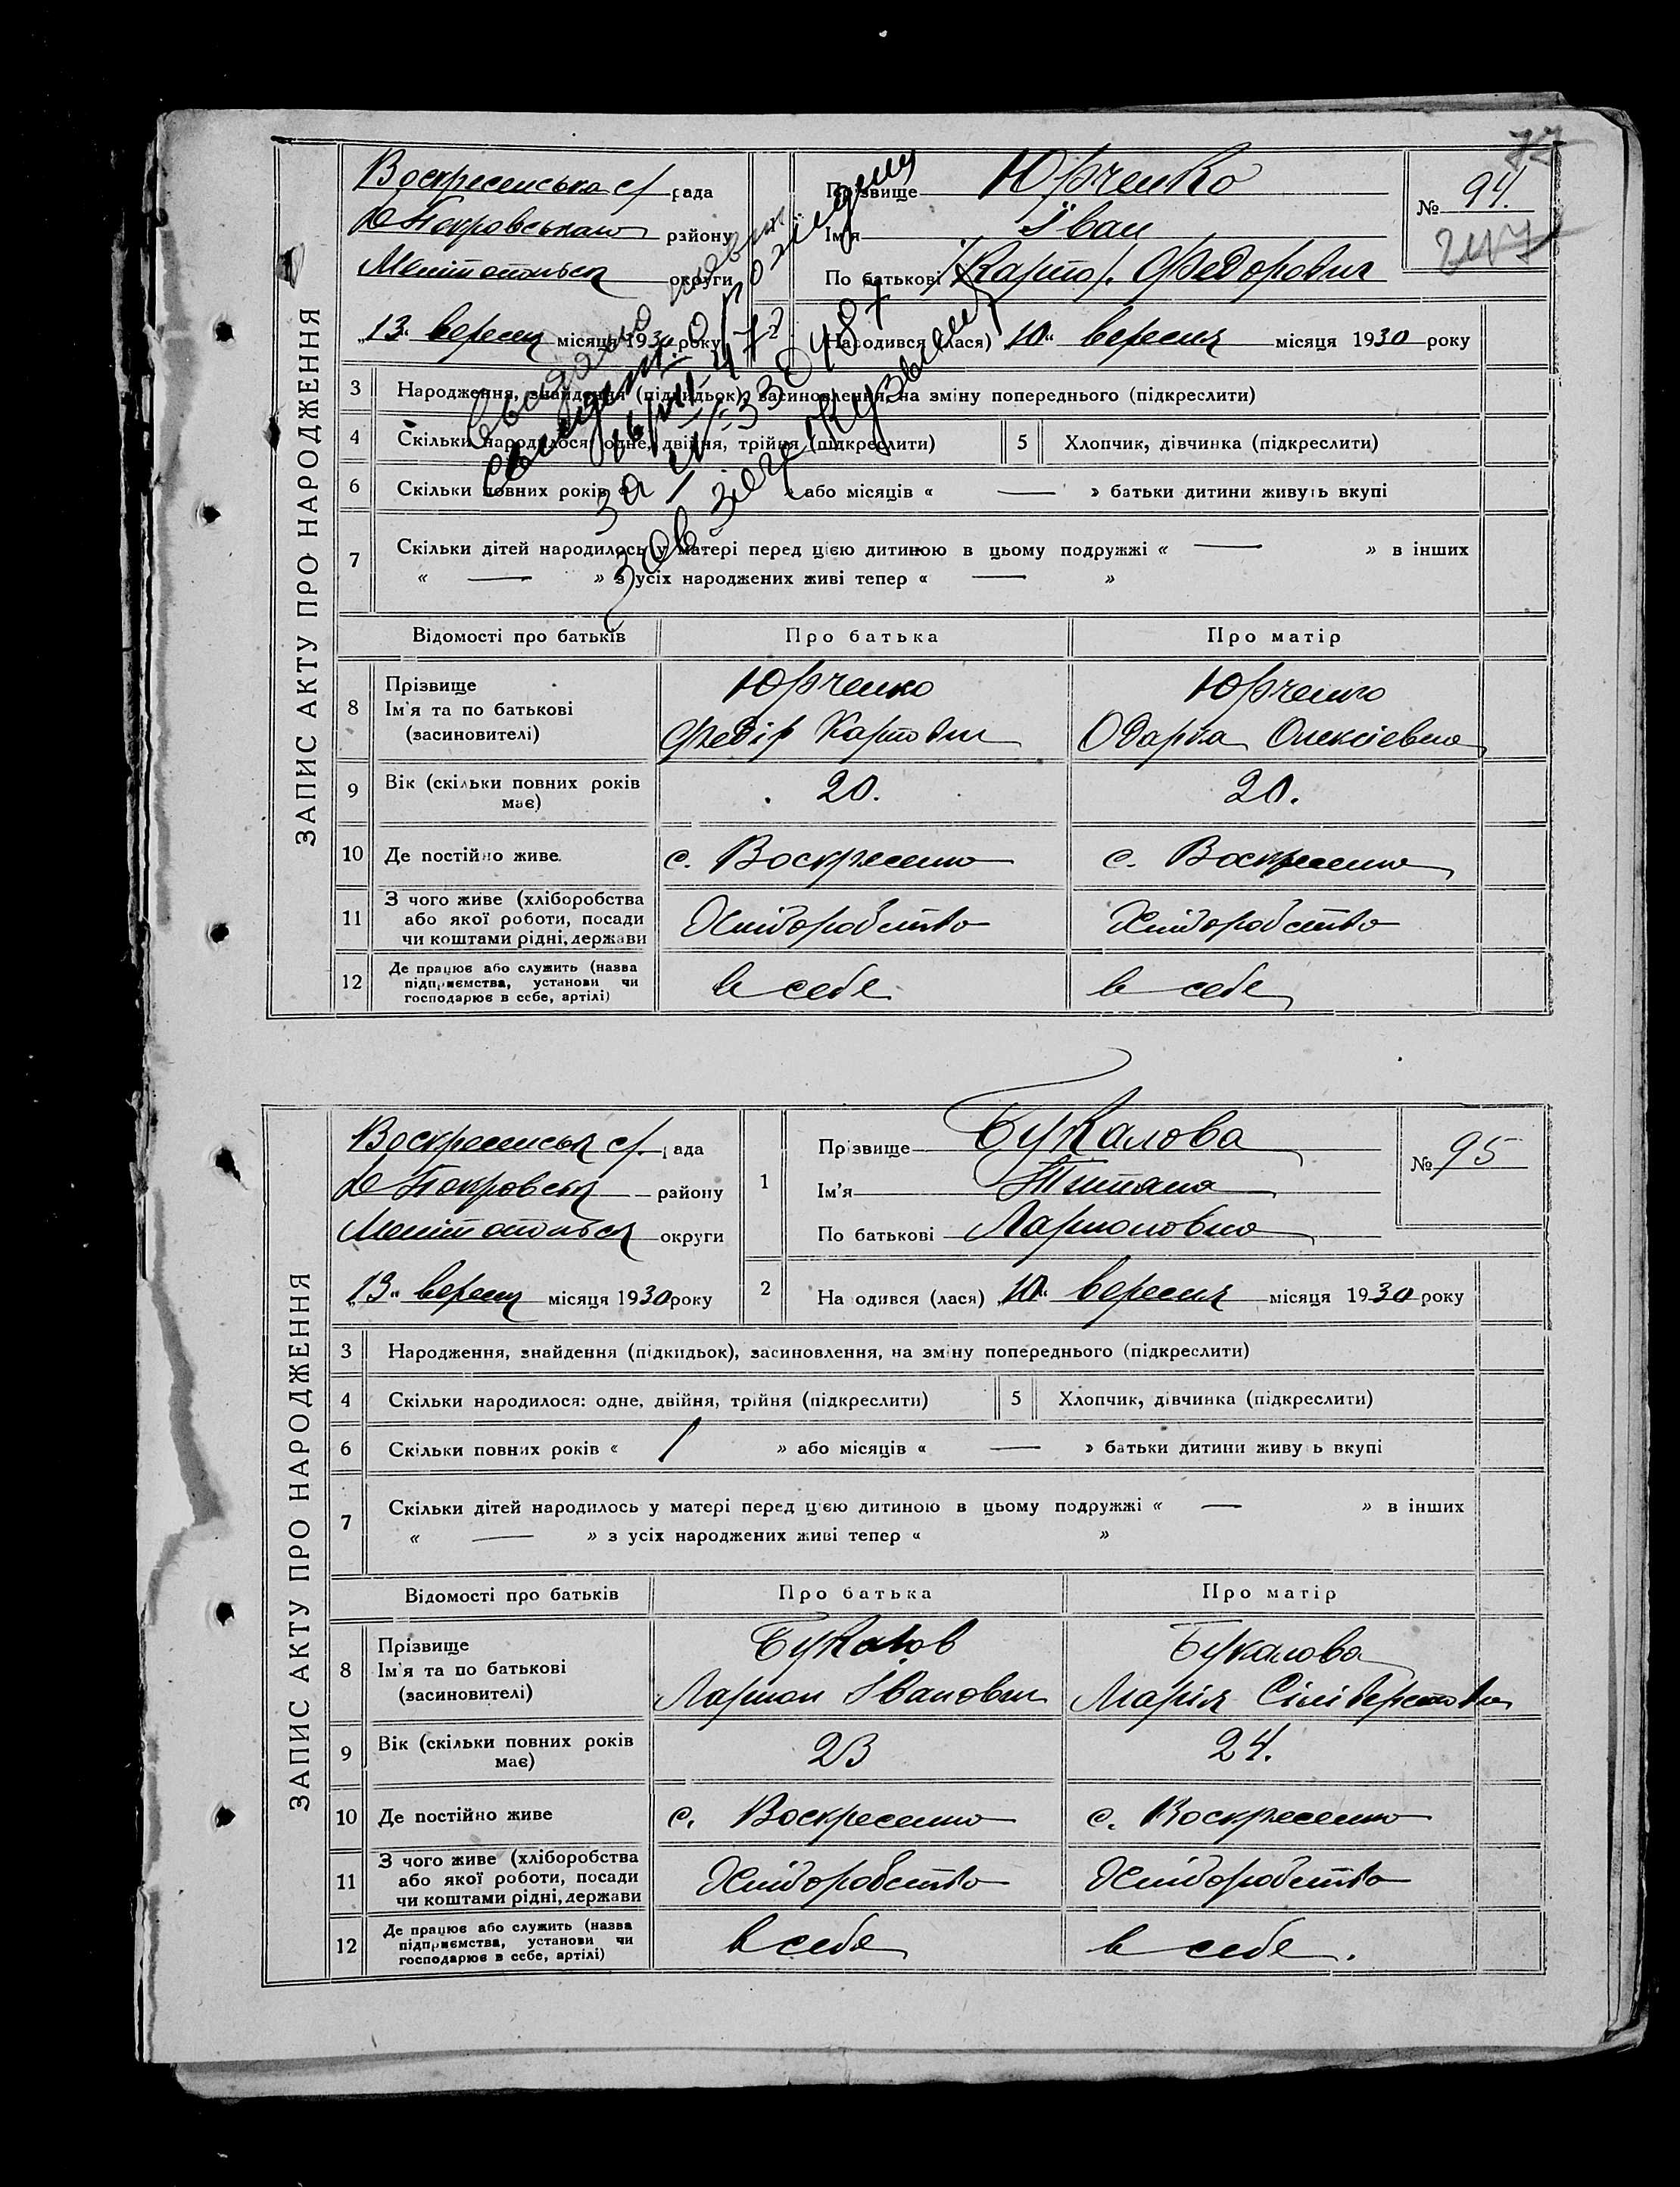 77
ЗАПИС АКТУ ПРО НАРОДЖЕННЯ
Воскресенська с/ рада
Покровського району
Мелітопільск округи
„13" вересня місяця 1930 року
Прізвище Юрченко
Ім'я Іван
По батькові /Карто/. Федорович
№ 94.
2
Народився (лася) „10" вересня місяця 1930 року
3 Народження, знайдення (підкидьок), засиновлення, на зміну попереднього (підкреслити)
4 Скільки народилося: одне, двійня, трійня (підкреслити) 5 Хлопчик, дівчинка (підкреслити)
6 Скільки повних років « » або місяців « — » батьки дитини живуть вкупі
7 Скільки дітей народилось у матері перед цією дитиною в цьому подружжі « — » в інших
« — » з усіх народжених живі тепер « — »
Відомості про батьків Про батька Про матір
8 Прізвище Ім'я та по батькові (засновителі)
Юрченко Юрченко
Федір Картович Одарка Олексієвна
9 Вік (скільки повних років має) 20. 20.
10 Де постійно живе. с. Воскресенка с. Воскресенка
11 З чого живе (хліборобства або якої роботи, посади чи коштами рідні, держави Хліборобство Хліборобство
12 Де працює або служить (назва підприємства, установи чи господарює в себе, артілі) в себе в себе
ЗАПИС АКТУ ПРО НАРОДЖЕННЯ
Воскресенськ с/. рада
Покровськ району
Мелітопільск округи
„13" вересня місяця 1930 року
1 Прізвище Букалова
Ім'я Титяна
По батькові Ларионовна
№ 95
2 Народився (лася) „10" вересня місяця 1930 року
3 Народження, знайдення (підкидьок), засиновлення, на зміну попереднього (підкреслити)
4 Скільки народилося: одне, двійня, трійня (підкреслити) 5 Хлопчик, дівчинка (підкреслити)
6 Скільки повних років « / » або місяців « — » батьки дитини живу ь вкупі
7 Скільки дітей народилось у матері перед цією дитиною в цьому подружжі « — » в інших
« — » з усіх народжених живі тепер « »
Відомості про батьків Про батька Про матір
8 Прізвище Ім'я та по батькові (засиновителі)
Букалов Букалова
Ларион Іванович Марія Сіліверстовна
9 Вік (скільки повних років має) 23 24.
10 Де постійно живе с. Воскресенка с. Воскресенка
11 З чого живе (хліборобства або якої роботи, посади чи коштами рідні, держави Хліборобство Хліборобство
12 Де працює або служить (назва підприємства, установи чи господарює в себе, артілі) в себе в себе.